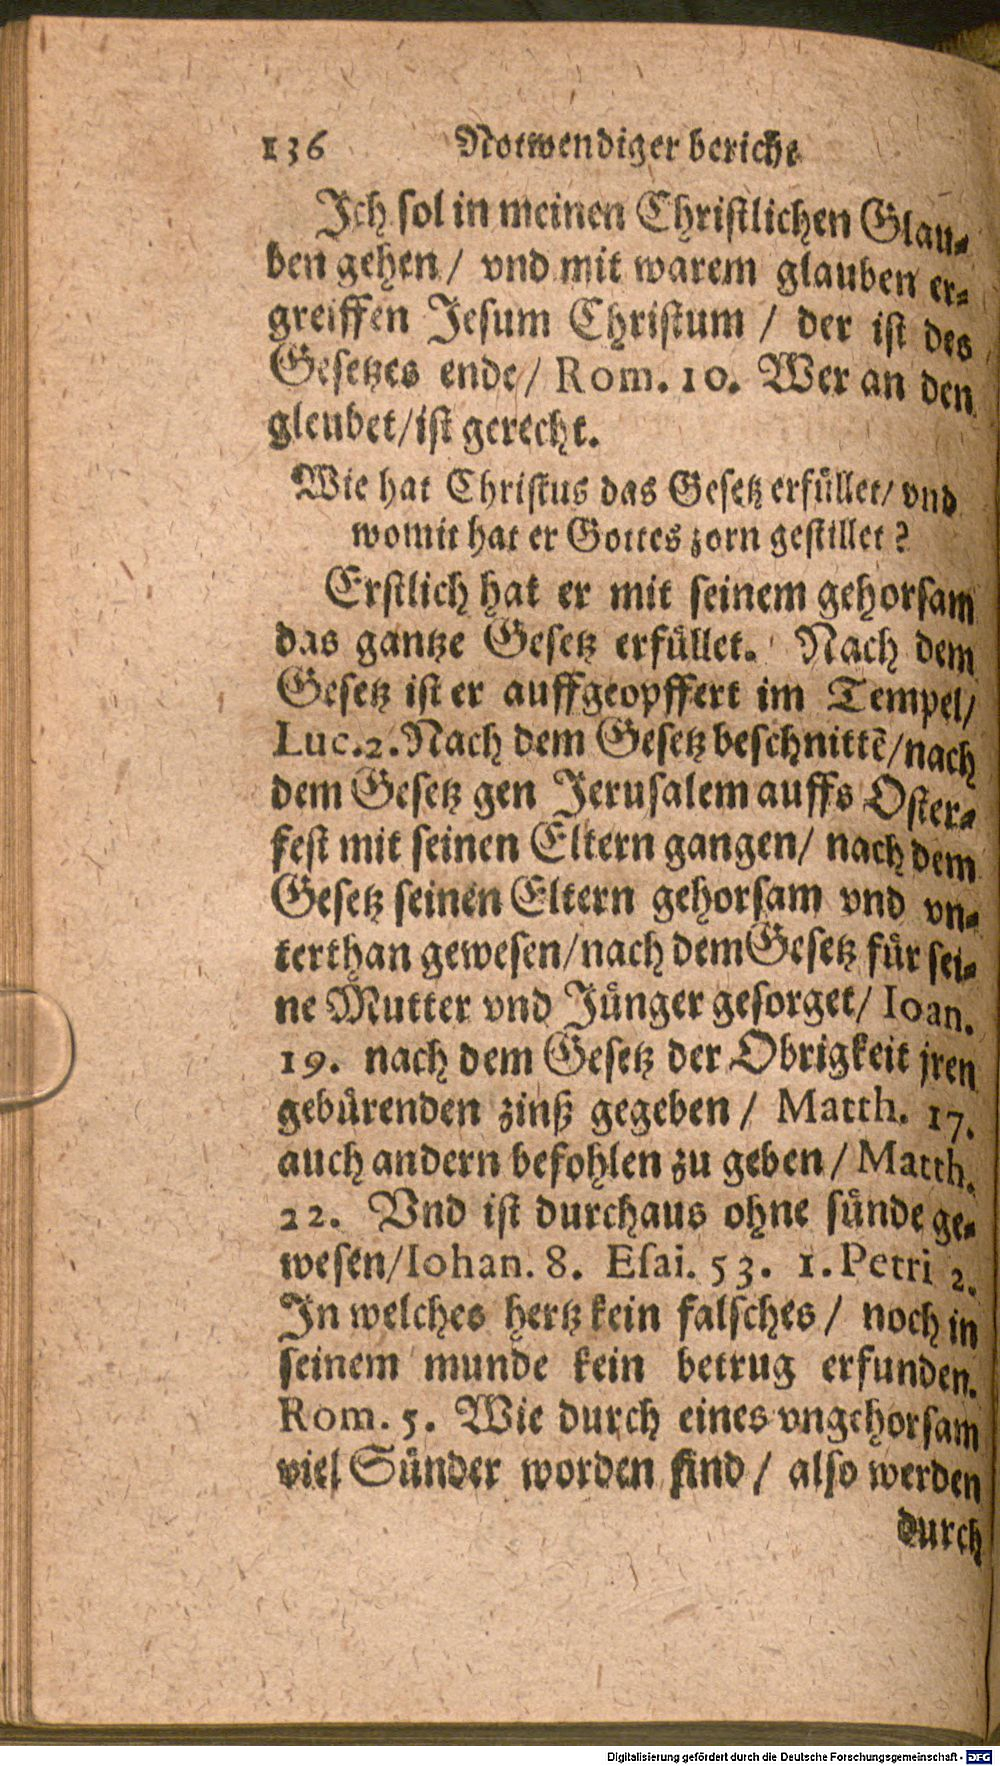 136 Notwendiger bericht
Ich sol in meinen Christlichen Glau-
ben gehen / vnd mit warem glauben er-
greiffen Jesum Christum / der ist des
Gesetzes ende / Rom. 10. Wer an den
gleubet / ist gerecht.
Wie hat Christus das Gesetz erfüllet / vnd
womit hat er Gottes zorn gestillet ?
Erstlich hat er mit seinem gehorsam
das gantze Gesetz erfüllet. Nach dem
Gesetz ist er auffgeopffert im Tempel /
Luc. 2. Nach dem Gesetz beschnittẽ / nach
dem Gesetz gen Jerusalem auffs Oster-
fest mit seinen Eltern gangen / nach dem
Gesetz seinen Eltern gehorsam vnd vn-
terthan gewesen / nach dem Gesetz für sei-
ne Mutter vnd Jünger gesorget / Ioan.
19. nach dem Gesetz der Obrigkeit jren
gebürenden zinß gegeben / Matth. 17.
auch andern befohlen zu geben / Matth.
22. Vnd ist durchaus ohne sünde ge-
wesen / Iohan. 8. Esai. 53. 1. Petri 2.
In welches hertz kein falsches / noch in
seinem munde kein betrug erfunden.
Rom. 5. Wie durch eines vngehorsam
viel Sünder worden sind / also werden
durch
Digitalisierung gefördert durch die Deutsche Forschungsgemeinschaft - DFG